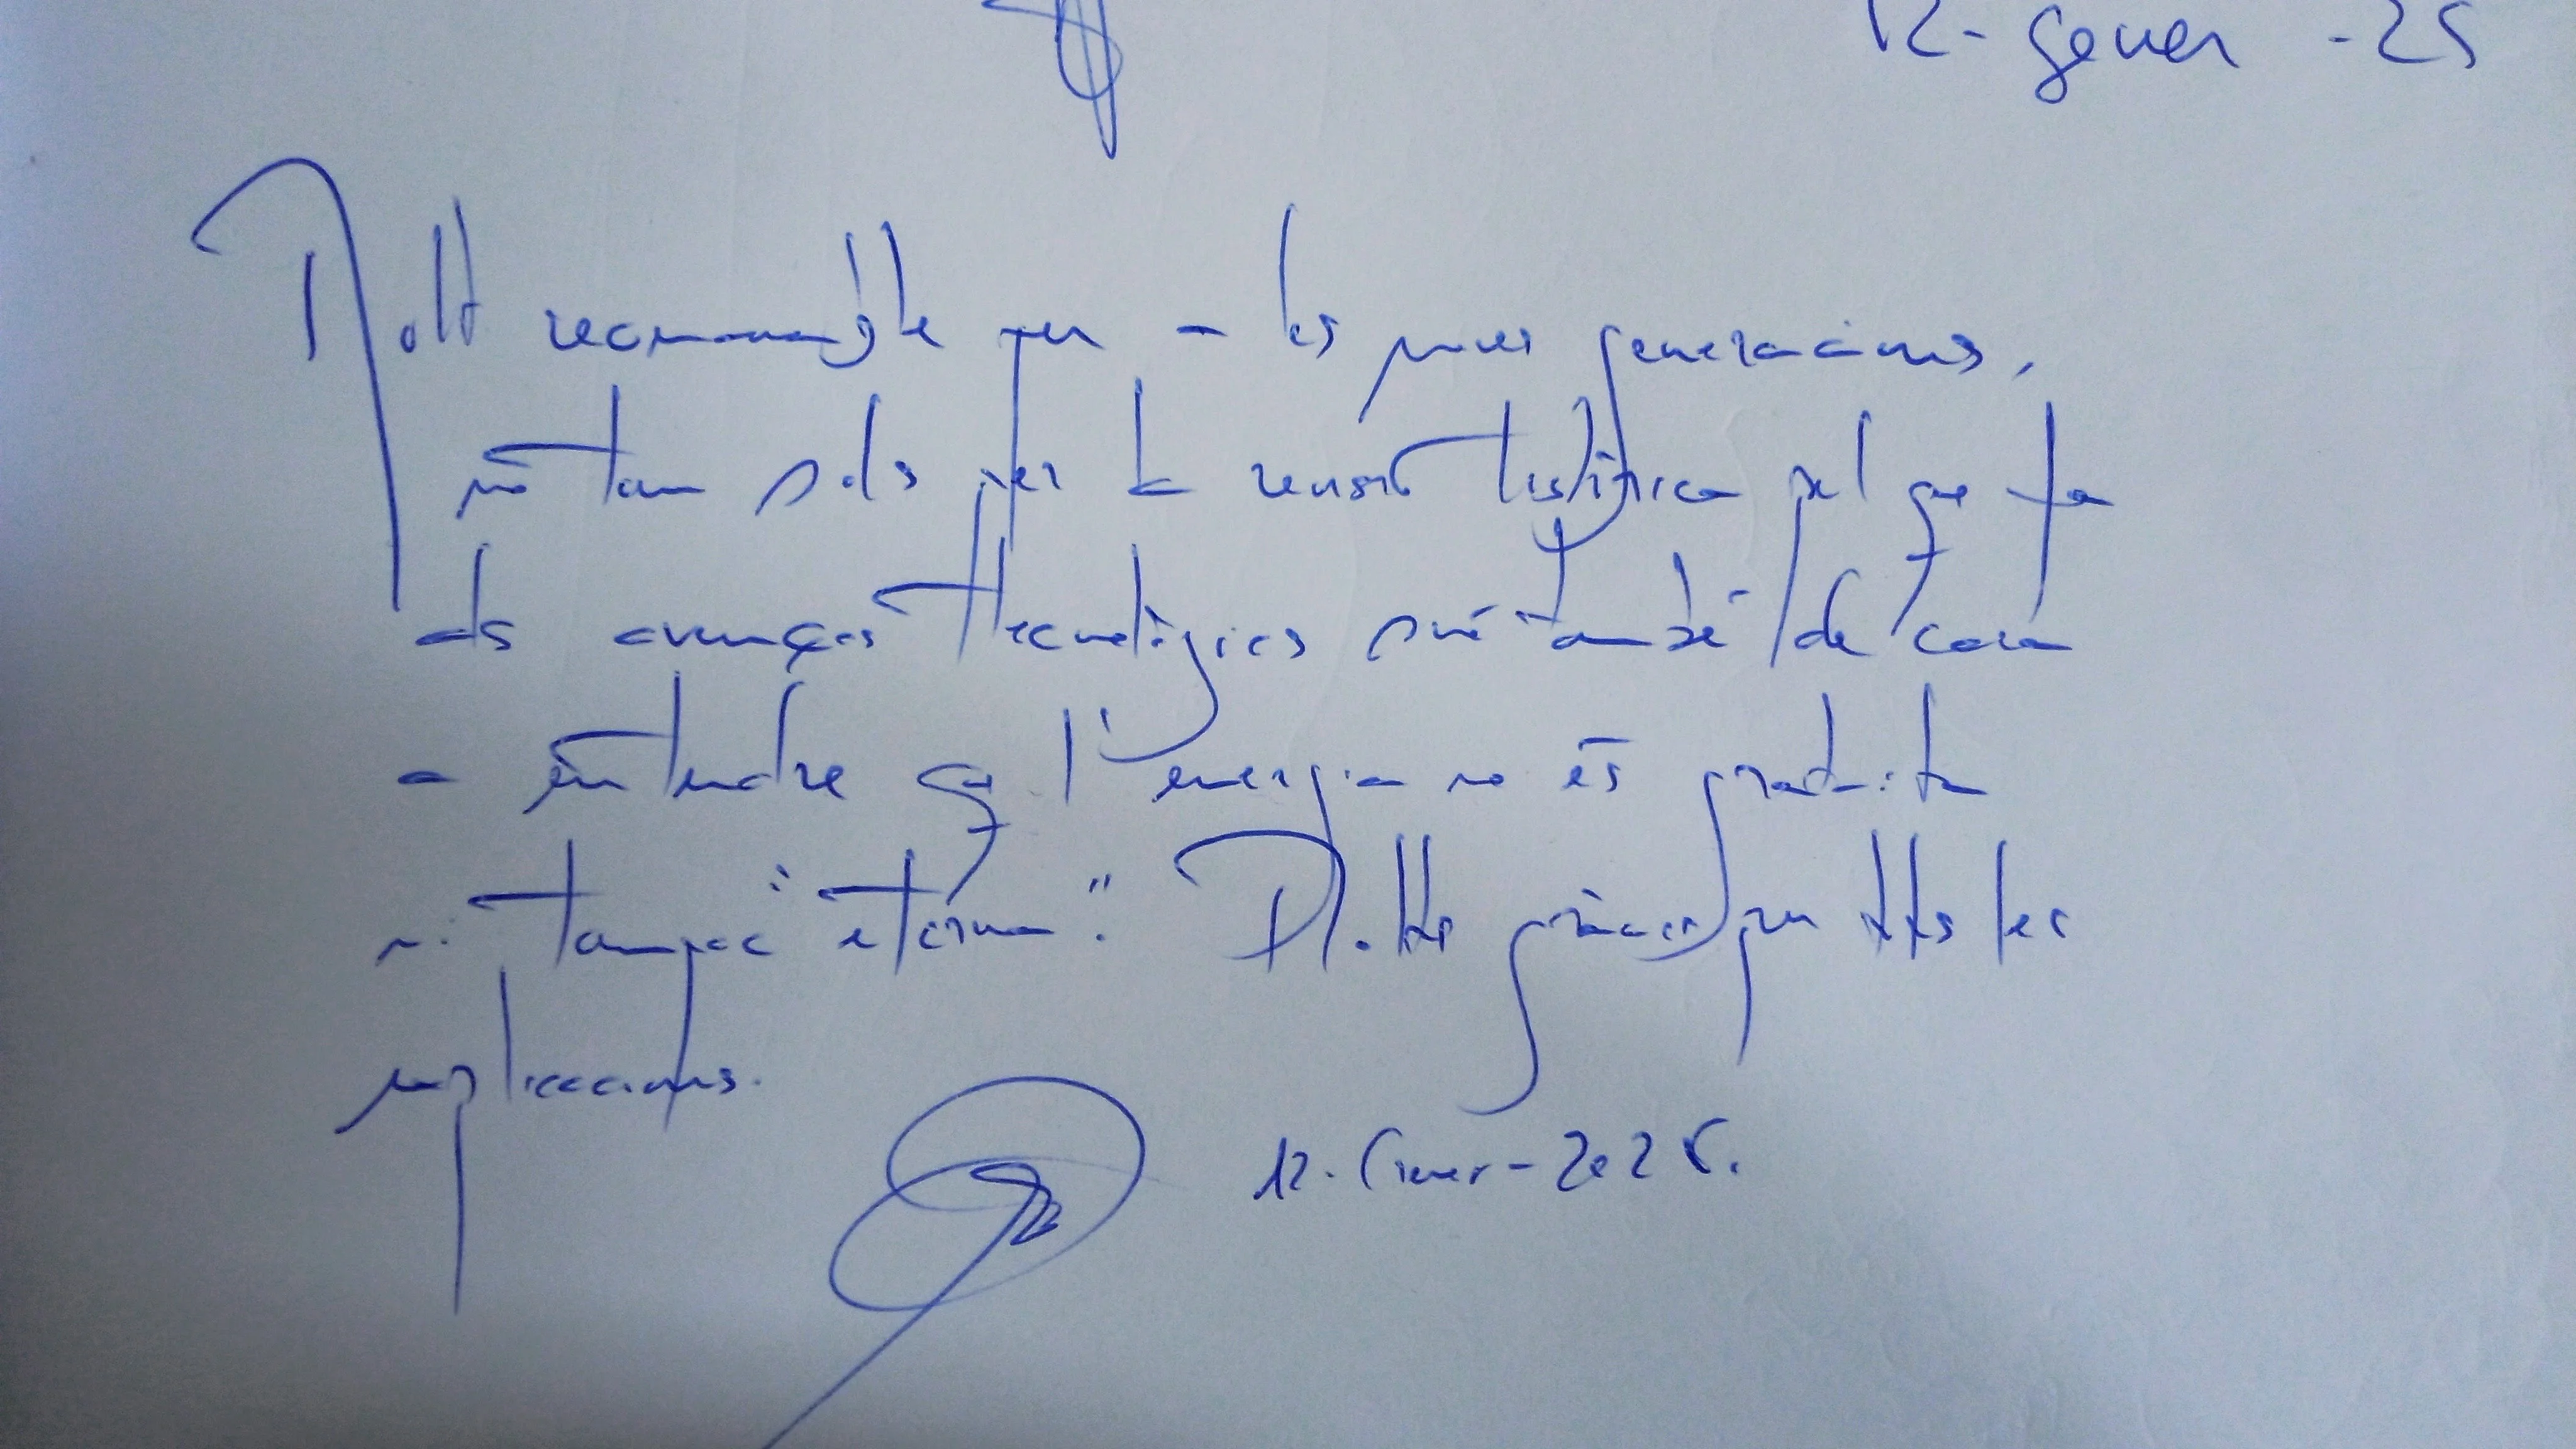 12-gener-25
Molt recomanable per a les noves generacions,
no tan sols per la històrica pel que fa
als avenços tecnològics sinó també de cara
a entendre q l'energia no és gratuita
ni tampoc "eterna". Moltes gràcies per totes les
explicacions.
12-Gener-2025.